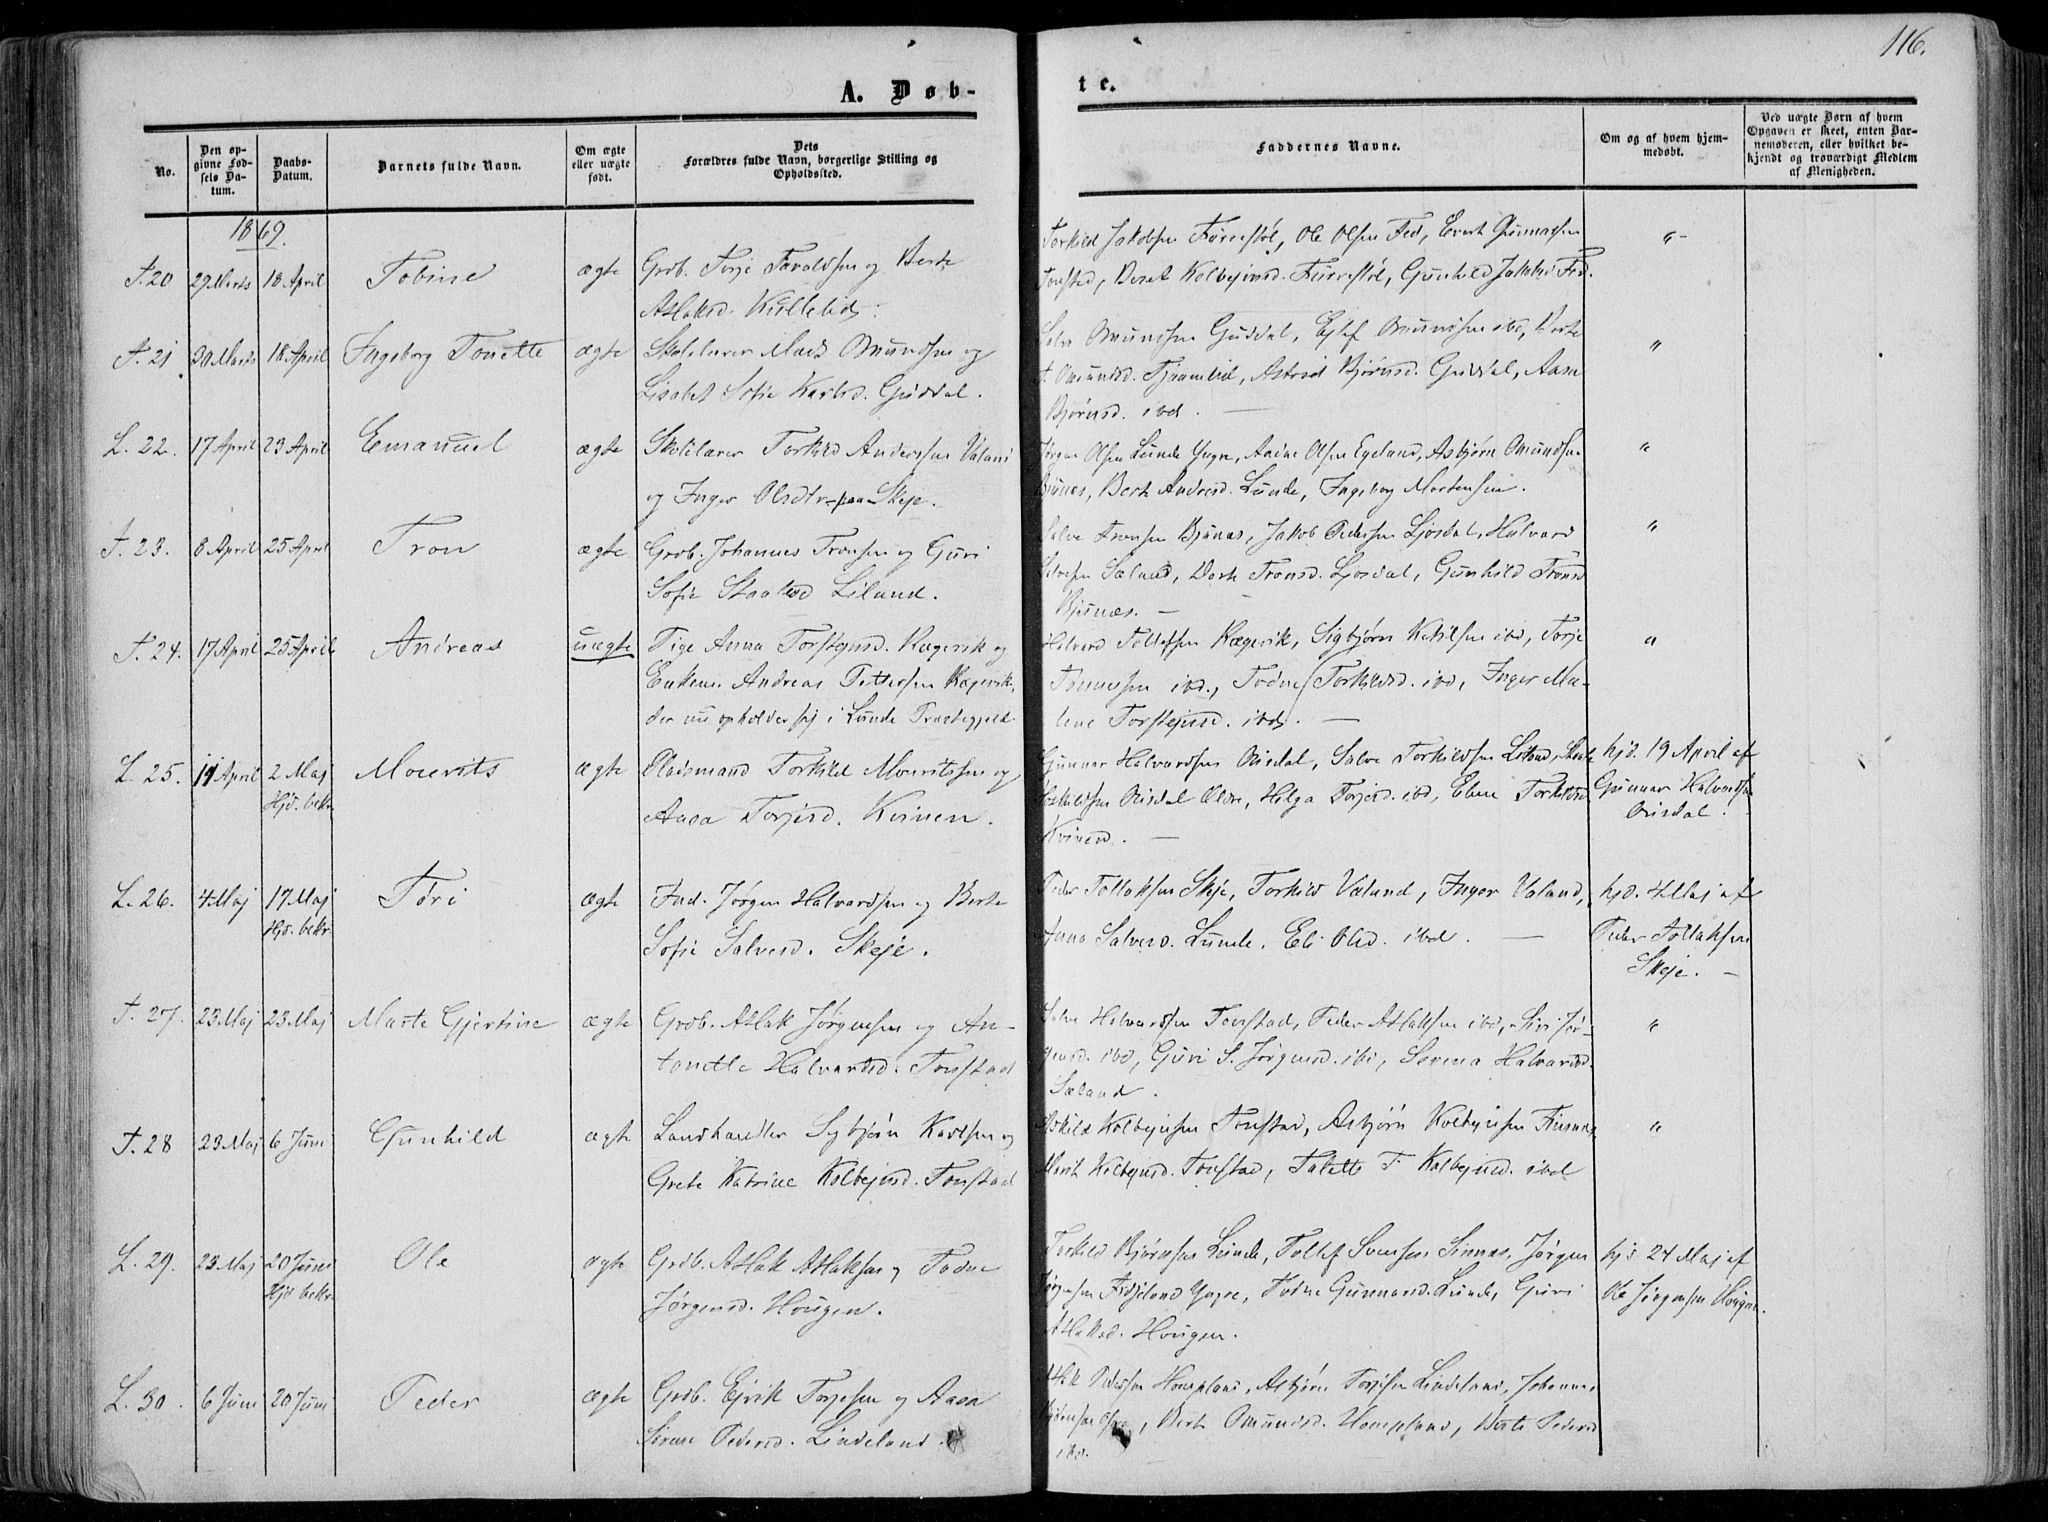 116.
A. Døb-
te.
No.
Den op-
givne Fød-
sels Da-
tum.
Daabs-
Datum.
Barnets fulde Navn.
Om ægte
eller uægte
født.
Dets
Forældres fulde Navn, borgerlige Stilling og
Opholdssted.
Faddernes Navne.
Om og af hvem hjem-
medøbt.
Ved uægte Børn af hvem
Opgaven er skeet, enten Bar-
nemoderen, eller hvilket be-
kjendt og troværdigt Medlem
af Menigheden.
1869.
T. 20 29 Marts 18 April Tobine ægte Grdb. Torje Tavaldsen og Berte
Atlaksd. Kvittelid.
Torkild Jakobsen Førrestøl, Ole Olsen Fed, Evert Gunnarsen
Tonstad, Beret Kolbejnsd. Førrestøl, Gunhild Jakobsd Fed.
"
T. 21 30 Marts 18 April Ingeborg Tonette ægte Skolelærer Mads Omundsen og
Lisabet Sofie Karlsd. Guddal.
Omundsen Guddal, Ejlef Omundsen ibd, Berte
T. Omundsd. Tjomlid, Astrid Bjørnsd. Guddal, Aasa
Bjørnsd. ibd. —
"
L. 22. 17 April 23 April Emanuel ægte Skolelærer Torkild Anderssen Valand
og Inger Olsdtr paa Skeje.
Jørgen Olsen Lunde Yngre, Aadne Olsen Egeland, Asbjørn Omundsen
Bjunes, Berte Andersd. Lunde, Ingeborg Mortensen.
"
T. 23. 8 April 25 April Tron ægte Grdb. Johannes Tronsen og Guri
Sofie Liland.
Salve Tronsen Bjunas, Jakob Pedersen Ljosdal, Halvard
Salvesen Sæland, Dorte Tronsd. Ljosdal, Gunhild Tronsd
Bjunæs. —
"
T. 24. 17 April 25 April Andreas uægte Pige Anna Torstejnsd. Rægevik og
Enkem. Andreas Pettersen Rægevik,
der nu opholder sig i Lunde Præstegjeld
Halvard Tollefsen Rægevik, Sigbjørn Ketilsen ibd, Torje
Tønnesen ibd., Todne Torkildsd. ibd, Inger Ma-
lene Torstejnsd. ibd. —
"
L. 25. 19 April 2 Maj
Hjd. bekr. Mourits ægte Pladsmand Torkild Mouritssen og
Aasa Torjesd. Kvinen.
Gunnar Halvardsen Risdal, Salve Torkildsen Liland,
Torkildsen Risdal Ældre, Helga Torjesd. ibd, Elene Torkildsd
Kvinen. —
hjd. 19 April af
Gunnar Halvardsen
Risdal.
L. 26. 4 Maj 17 Maj
Hjd. bekr. Tøri ægte Ind. Jørgen Halvardsen og Berte
Sofie Salvesd. Skeje.
Peder Tollaksen Skeje, Torkild Valand, Inger Valand,
Anna Salvesd. Lunde. Eli Olsd. ibd. —
hjd. 4 Maj af
Peder Tollaksen
Skeje. —
T. 27. 23 Maj 23 Maj Marte Gjertine ægte Grdb. Atlak Jørgensen og An-
tonette Halvardsd. Tonstad
Salve Halvardsen Tonstad, Peder Atlaksen ibd, Siri Jør-
gensd. ibd, Guri S. Jørgensd. ibd, Serina Halvardsd.
Sæland.
"
T. 28 23 Maj 6 Juni Gunhild ægte Landhandler Sigbjørn Karlsen og
Grete Katrine Kolbejnsd. Tonstad
Askild Kolbejnsen Tonstad, Asbjørn Kolbejnsen Fiusnes,
Marit Kolbejnsd. Tonstad, Talette T. Kolbejnsd. ibd
"
L. 29. 23 Maj 20 Juni
Hjd bekr. Ole ægte Grdb. Atlak Atlaksen og Todne
Jørgensd. Hougen.
Torkild Bjørnsen Lunde, Tollef Svensen Sinnes, Jørgen
Jørgensen Fidjeland Yngre, Todne Gunnarsd. Lunde, Guri
Atlaksd. Hougen.
hjd 24 Maj af
Ole Jørgensen Hougen.
L. 30. 6 Juni 20 Juni Peder ægte Grdb. Ejvik Torjesen og Aasa
Sirene Pedersd. Lindeland.
Pedersen Hompland, Asbjørn Torjesen Lindeland, Johannes
Berte Omundsd. Hompland, Berte Pedersd
ibd.